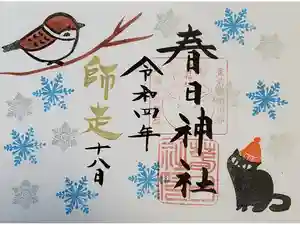 春日神社
令和四年
師走
十八日